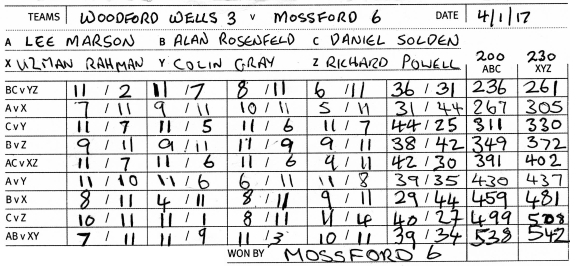 TEAMS WOODFORD WELLS 3 v MOSSFORD 6 DATE 4/1/17
A LEE MARSON B ALAN ROSENFELD C DANIEL SOLDEN
X UZMAN RAHMAN Y COLIN GRAY Z RICHARD POWELL 200 ABC 230 XYZ
BC v YZ 11 / 2 11 / 7 8 / 11 6 / 11 36 / 31 236 261
A v X 7 / 11 9 / 11 10 / 11 5 / 11 31 / 44 267 305
C v Y 11 / 7 11 / 5 11 / 6 11 / 7 44 / 25 311 330
B v Z 9 / 11 9 / 11 11 / 9 9 / 11 38 / 42 349 372
AC v XZ 11 / 7 11 / 6 11 / 6 9 / 11 42 / 30 391 402
A v Y 11 / 10 11 / 6 6 / 11 11 / 8 39 / 35 430 437
B v X 8 / 11 4 / 11 8 / 11 9 / 11 29 / 44 459 481
C v Z 10 / 11 11 / 1 8 / 11 11 / 4 40 / 27 499 508
AB v XY 7 / 11 11 / 9 11 / 3 10 / 11 39 / 34 538 542
WON BY MOSSFORD 6